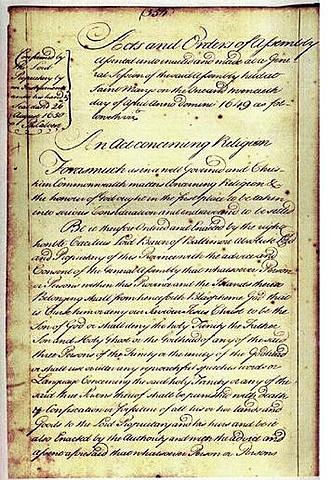 (354)
Confirmed by
the Lord
Proprietary by
an Instrument
under his hand &
Seal dated 26
August 1650
Acts and Orders of Assembly
assented unto enacted and made at a Gene
ral Session of the said Assembly held at
Saint Mary's on the one and twentieth
day of Aprill Anno Domini 1649 as fol
loweth viz
An Act concerning Religion
Forasmuch as in a well Governed and Chris
tian Commonwealth matters concerning Religion &
the honour of God ought in the first place to be taken
into serious Consideration and endeavoured to be settled
Be it therefore Ordered and Enacted by the right
honble Cecilius Lord Baron of Baltimore absolute Lord
and Proprietary of this Province with the advice and
Consent of this Generall Assembly that whatsoever Person
or Persons within this Province and the Islands thereto
Belonging shall from henceforth Blaspheme God that
is Curse him or deny our Saviour Jesus Christ to be the
Son of God or shall deny the holy Trinity the Father
Son and Holy Ghost or the Godhead of any of the said
three Persons of the Trinity or the unity of the Godhead
or shall use or utter any reproachful speeches words or
Language Concerning the said holy Trinity or any of the
said three Persons thereof shall be punished with death
& Confiscation or forfeiture of all his or her Lands and
Goods to the Lord Proprietary and his heirs and be it
also Enacted by the Authority and with the advice and
assent aforesaid that whatsoever Person or Persons